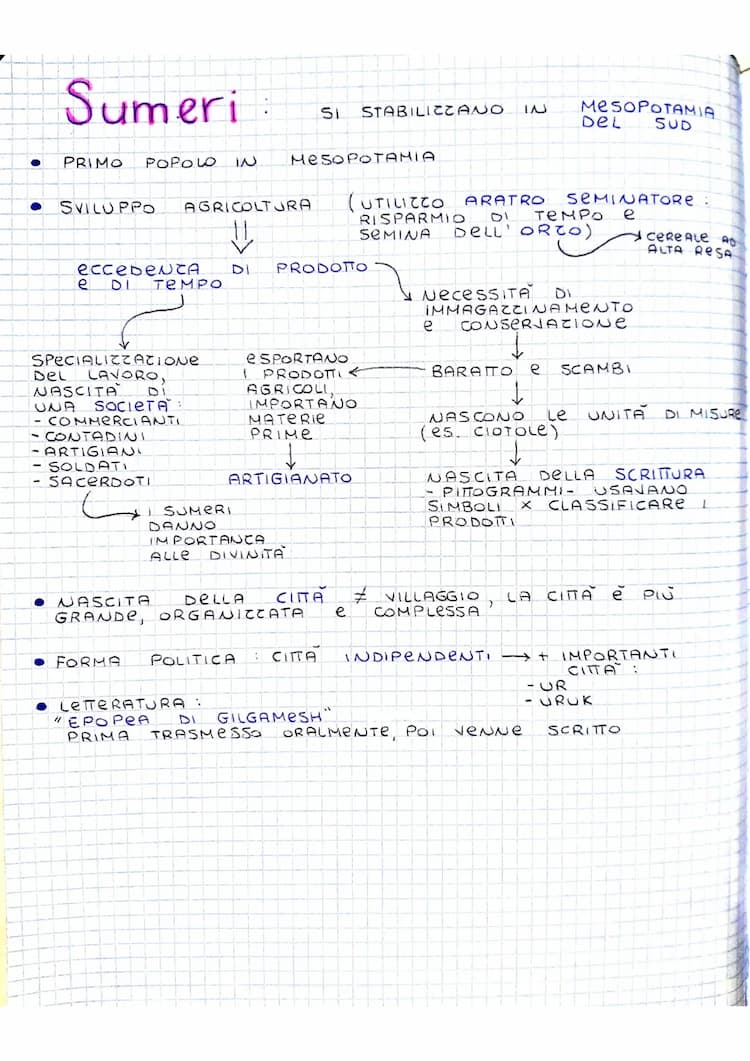 Sumeri : SI STABILIZZANO IN MESOPOTAMIA
DEL SUD
• PRIMO POPOLO IN MESOPOTAMIA
• SVILUPPO AGRICOLTURA (UTILIZZO ARATRO SEMINATORE :
RISPARMIO DI TEMPO E
SEMINA DELL'ORZO)
CEREALE AD
ALTA RESA
ECCEDENZA DI PRODOTTO
E DI TEMPO
NECESSITÀ DI
IMMAGAZZINAMENTO
E CONSERVAZIONE
SPECIALIZZAZIONE
DEL LAVORO,
NASCITA DI
UNA SOCIETÀ :
- COMMERCIANTI
- CONTADINI
- ARTIGIANI
- SOLDATI
- SACERDOTI
I SUMERI
DANNO
IMPORTANZA
ALLE DIVINITÀ
ESPORTANO
I PRODOTTI
AGRICOLI,
IMPORTANO
MATERIE
PRIME
ARTIGIANATO
BARATTO E SCAMBI
NASCONO LE UNITÀ DI MISURE
(ES. CIOTOLE)
NASCITA DELLA SCRITTURA
- PITTOGRAMMI - USAVANO
SIMBOLI × CLASSIFICARE I
PRODOTTI
• NASCITA DELLA CITTÀ ≠ VILLAGGIO, LA CITTÀ È PIÙ
GRANDE, ORGANIZZATA E COMPLESSA
• FORMA POLITICA : CITTÀ INDIPENDENTI → + IMPORTANTI
CITTÀ :
- UR
- URUK
• LETTERATURA :
"EPOPEA DI GILGAMESH"
PRIMA TRASMESSO ORALMENTE, POI VENNE SCRITTO